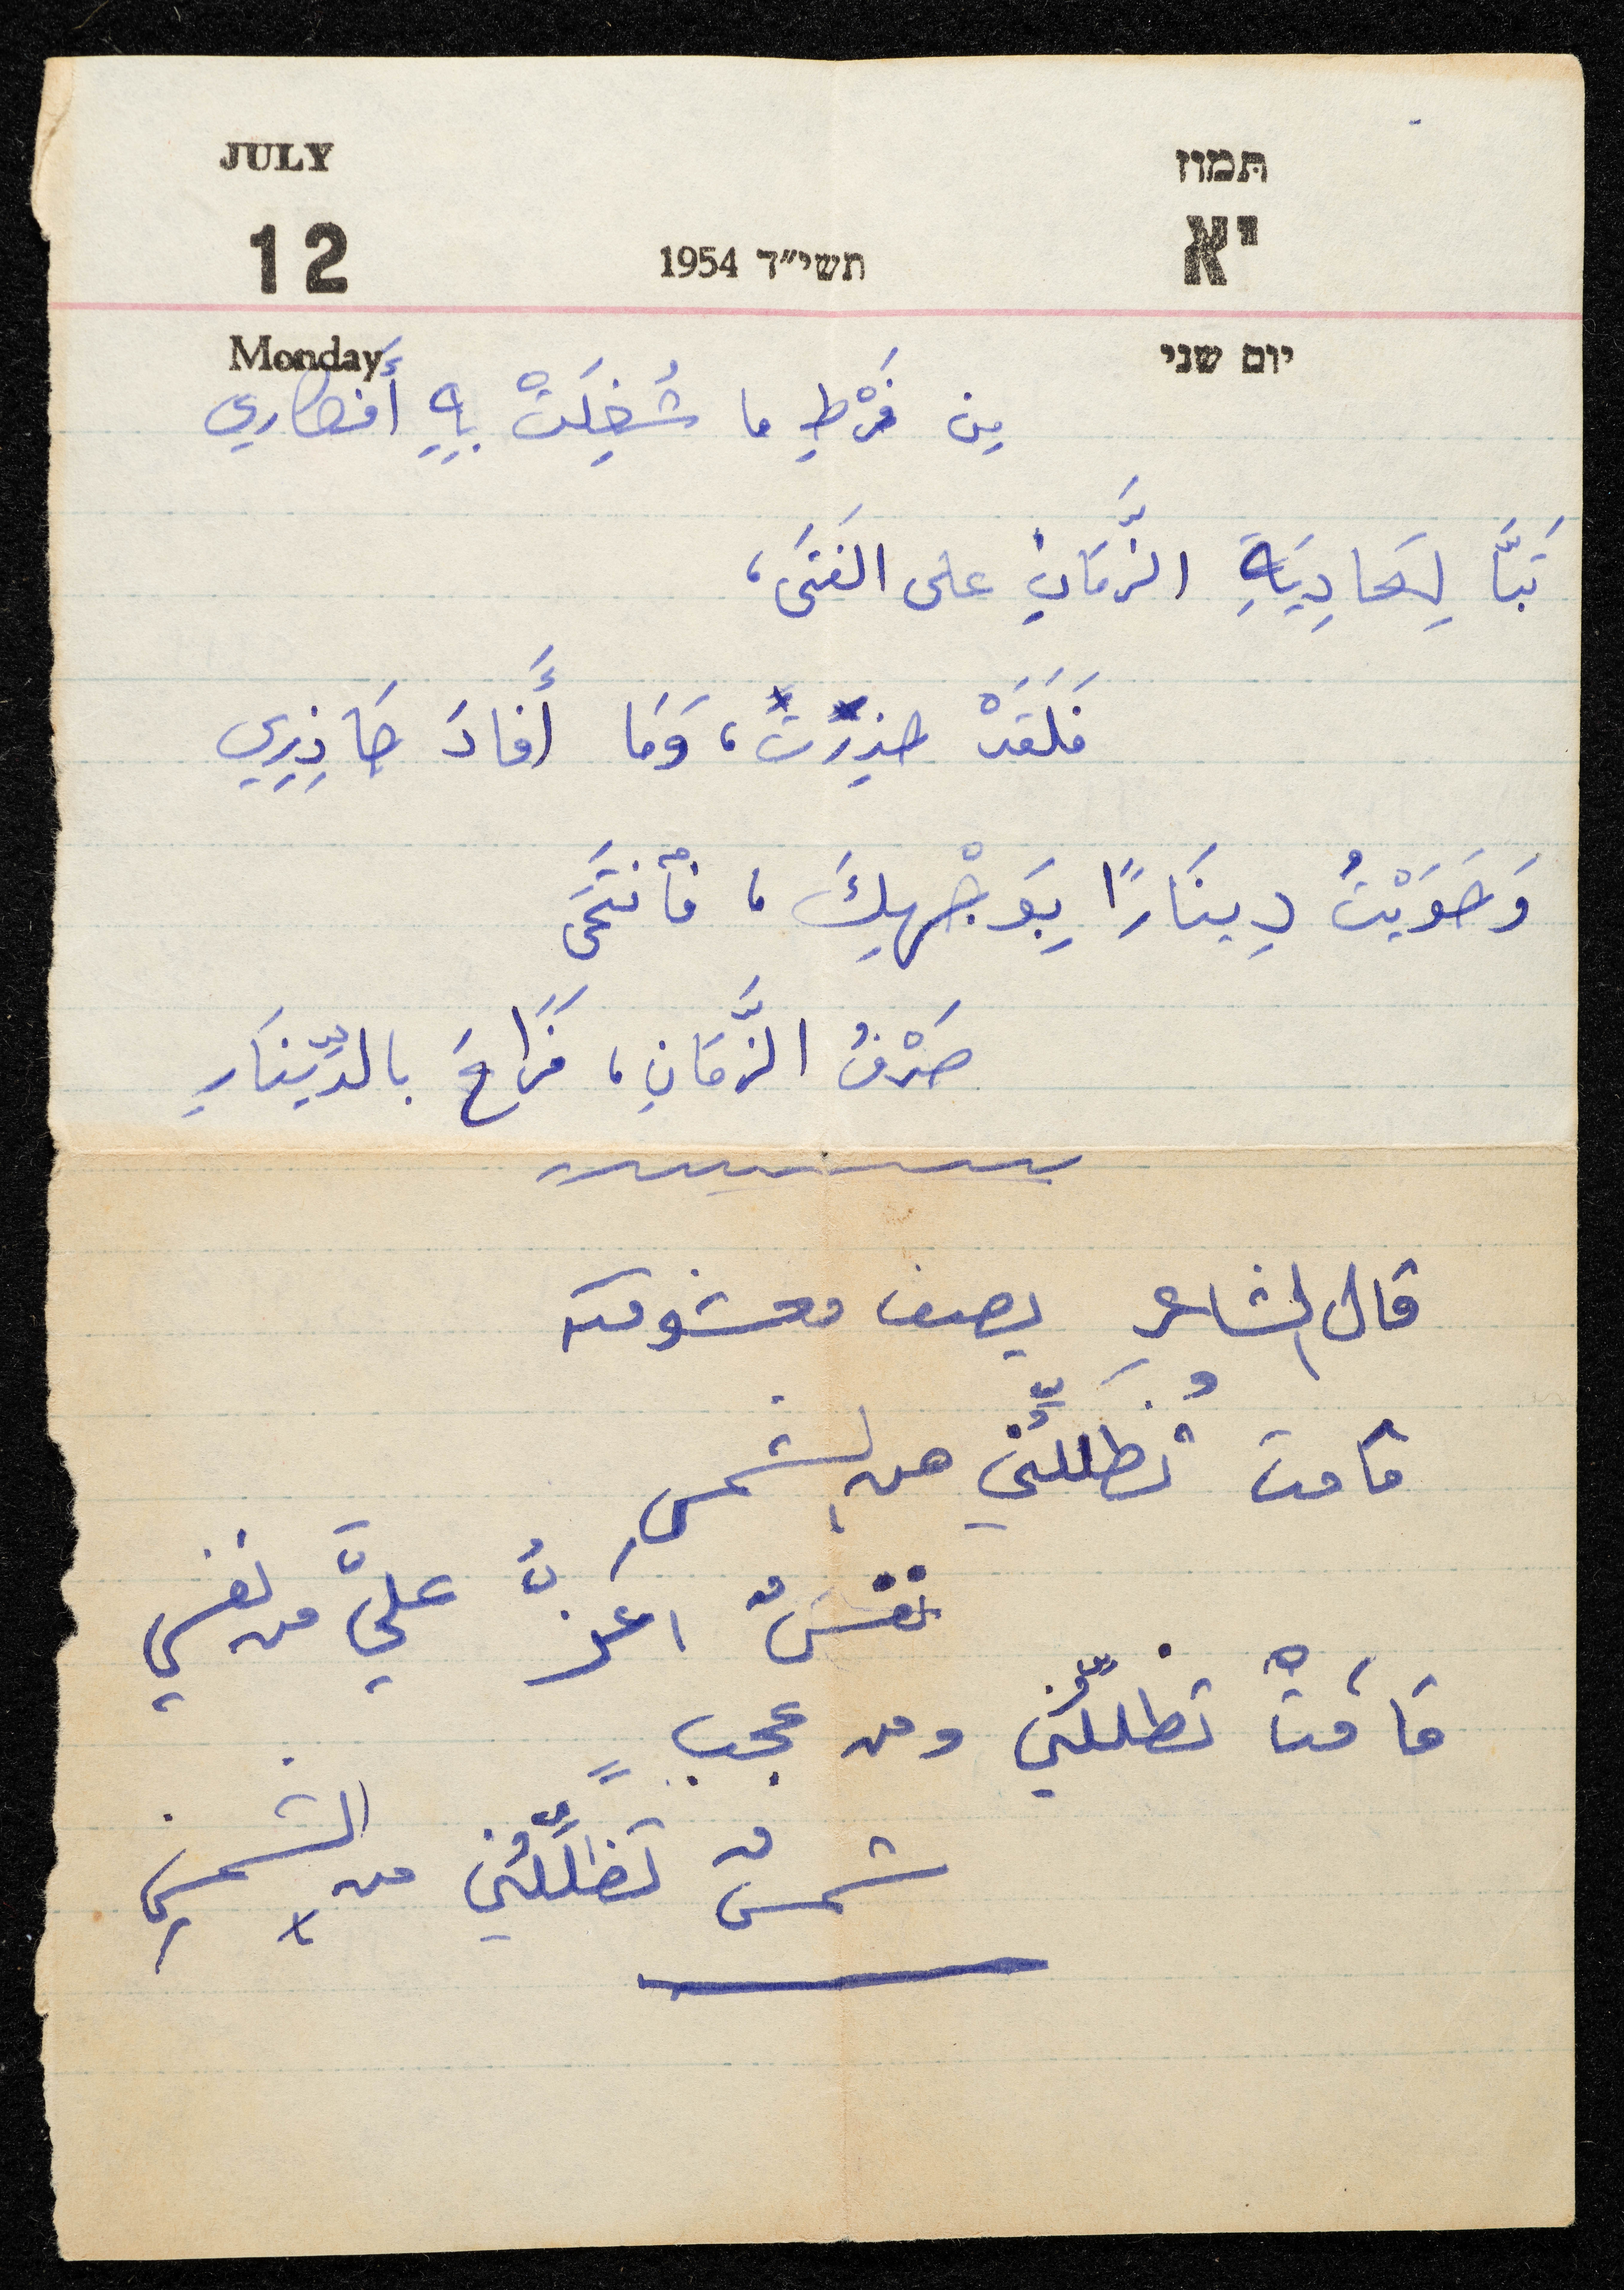 JULY תמוז
12 תשי״ד 1954 יא
Monday יום שני
مِن فَرْطِ ما شُغِلَتْ بِهِ أَفكاري
تَبًّا لِعَادِيَةِ الزَّمَانِ على الفَتَى،
فَلَقَدْ حذِرْتُ، وَمَا أَفادَ حَاذِرِي
وَحَوَيْتُ دِينَارًا بِوَجْهِكَ، فٱنتَحَى
صَرْفُ الزَّمَانِ، فَرَاحَ بالدِّينَارِ
قال الشاعر يصف معشوقته
قامت تُظَلِّلُني من الشمسِ
نفسٌ اعزُّ عليَّ من نفسي
قامتْ تظلّلُني ومن عجبٍ
شمسٌ تظلِّلُني من الشمسِ